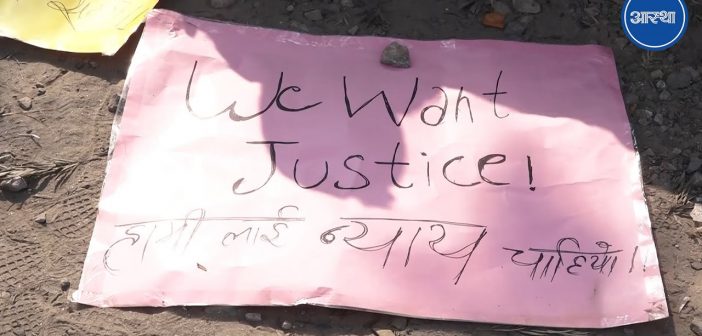 आस्था
We Want
Justice!
हामी लाई न्याय चाहियो!!